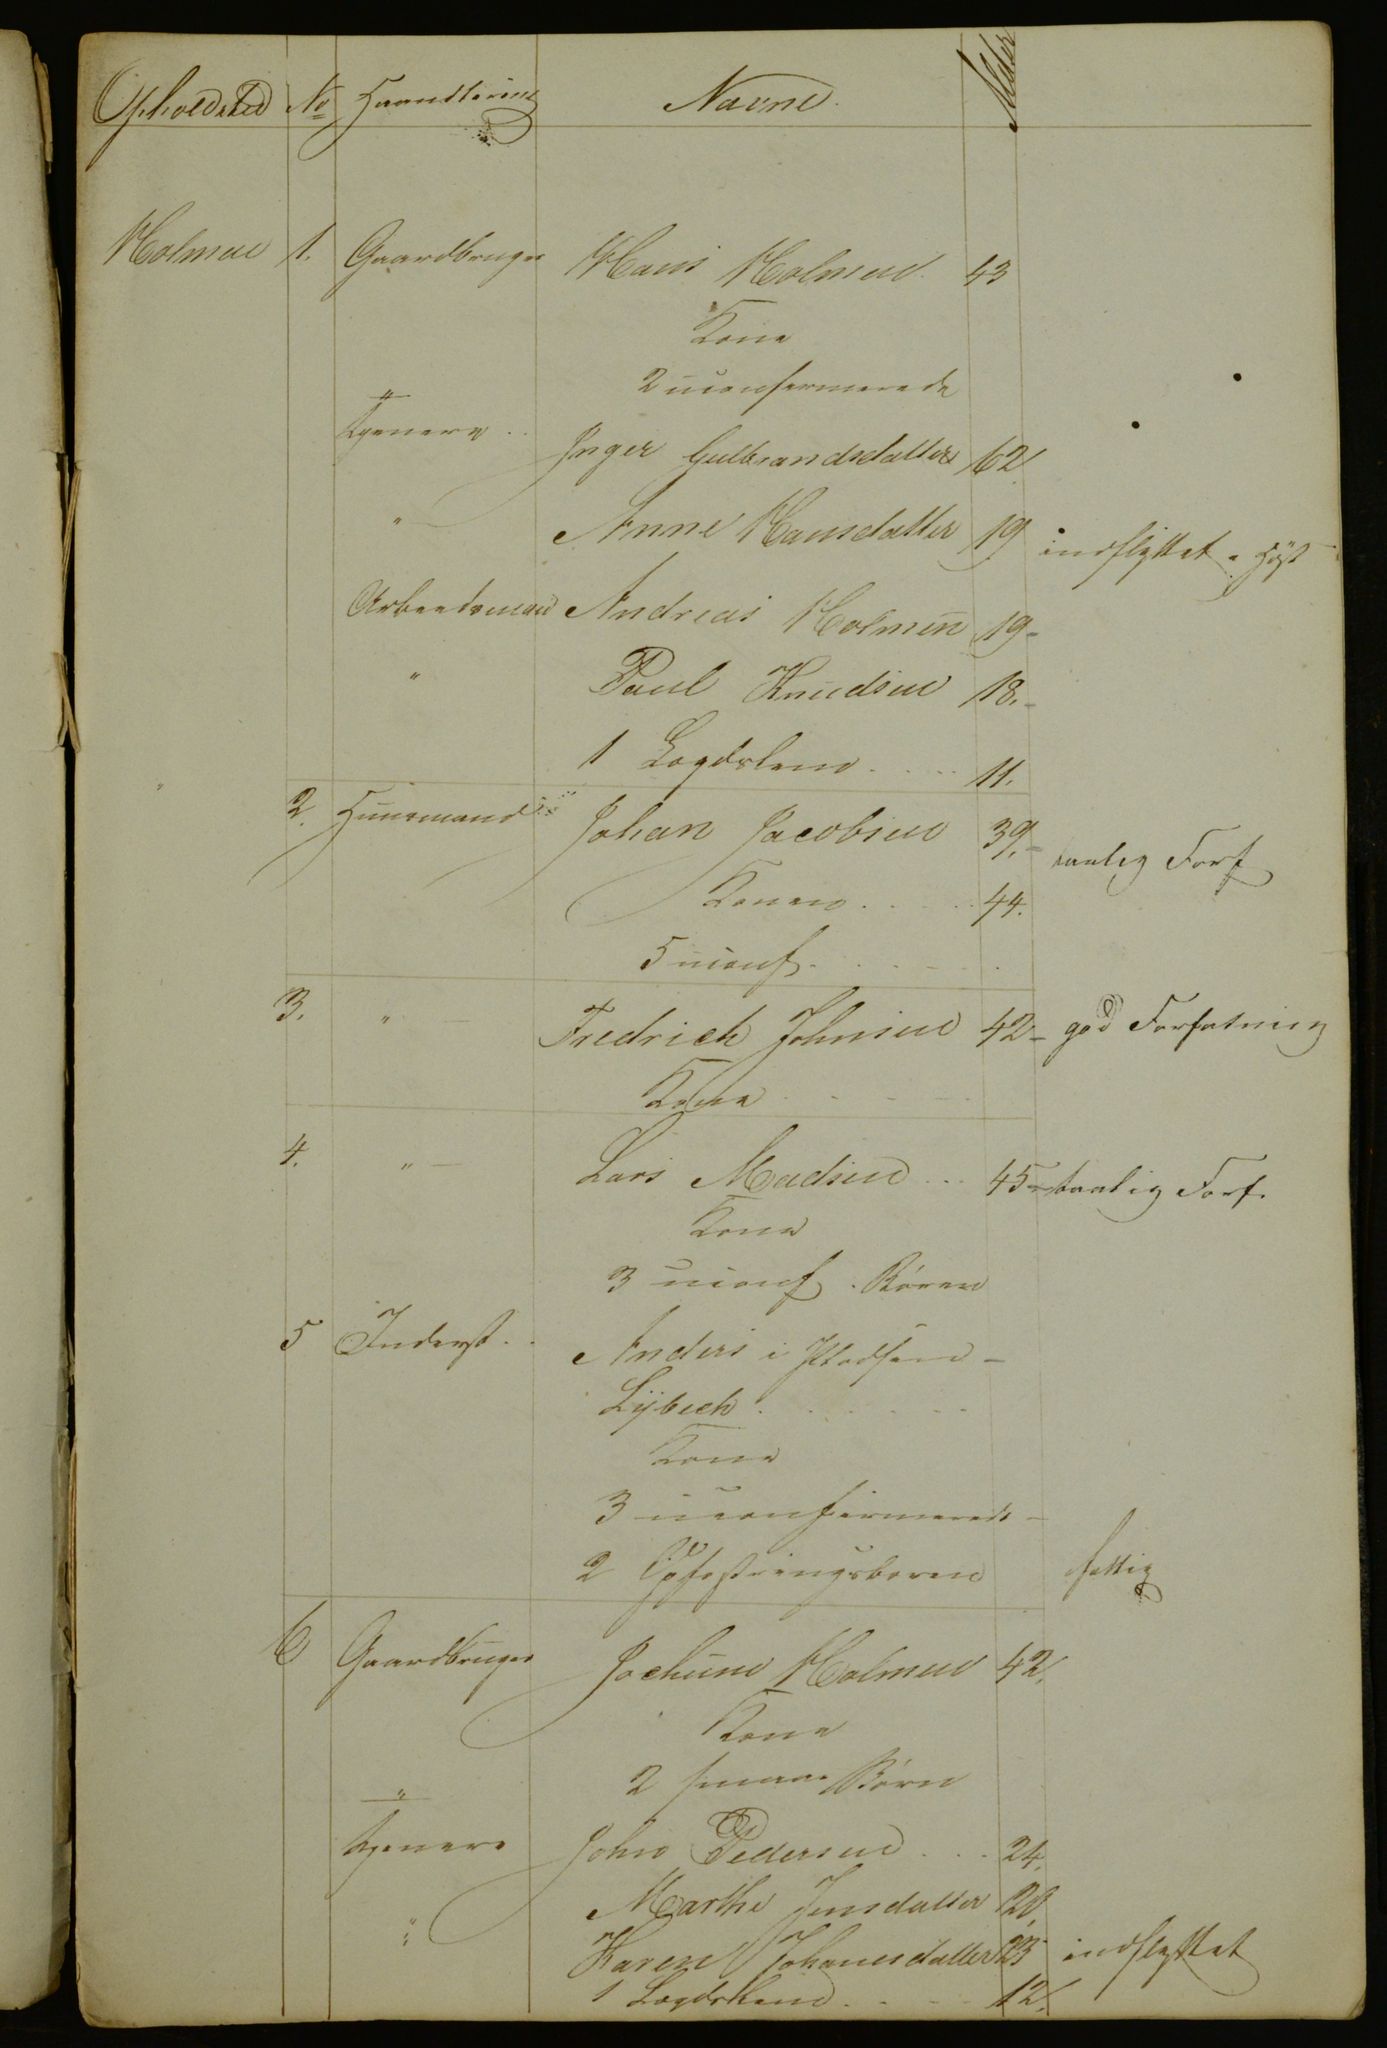 Opholdsted No Haandtering Navne Alder
Holmen 1. Gaardbruger Hans Holmen 43
Kone
2 uconfermerede
Tjenere Inger Gulbrandsdatter 62
" Anne Hansdatter 19 indflyttet Høst
Arbeidsmand Andreas Holmen 19
" Paul Knudsen 18.
1 Lægdslem 11.
2. Huusmand Johan Jacobsen 39. taalig Forf
Konen 44.
5 uconf.
3. " Fredrich Johnsen 42 god Forfatning
Kone
4. " Lars Madsen 45 taalig Forf.
Kone
3 uconf. Børen
5 Inderst Anders i
Lybech
Kone
3 uconfirmerede
2 Opfostringsboren fattig
6 Gaardbruger Jochum Holmen 42.
Kone
" 2 smaae Børn
Tjenere John Pedersen 24.
" Marthe Jensdatter 20
Karen Johanesdatter 23 indflyttet
1 Lægdslem 12.